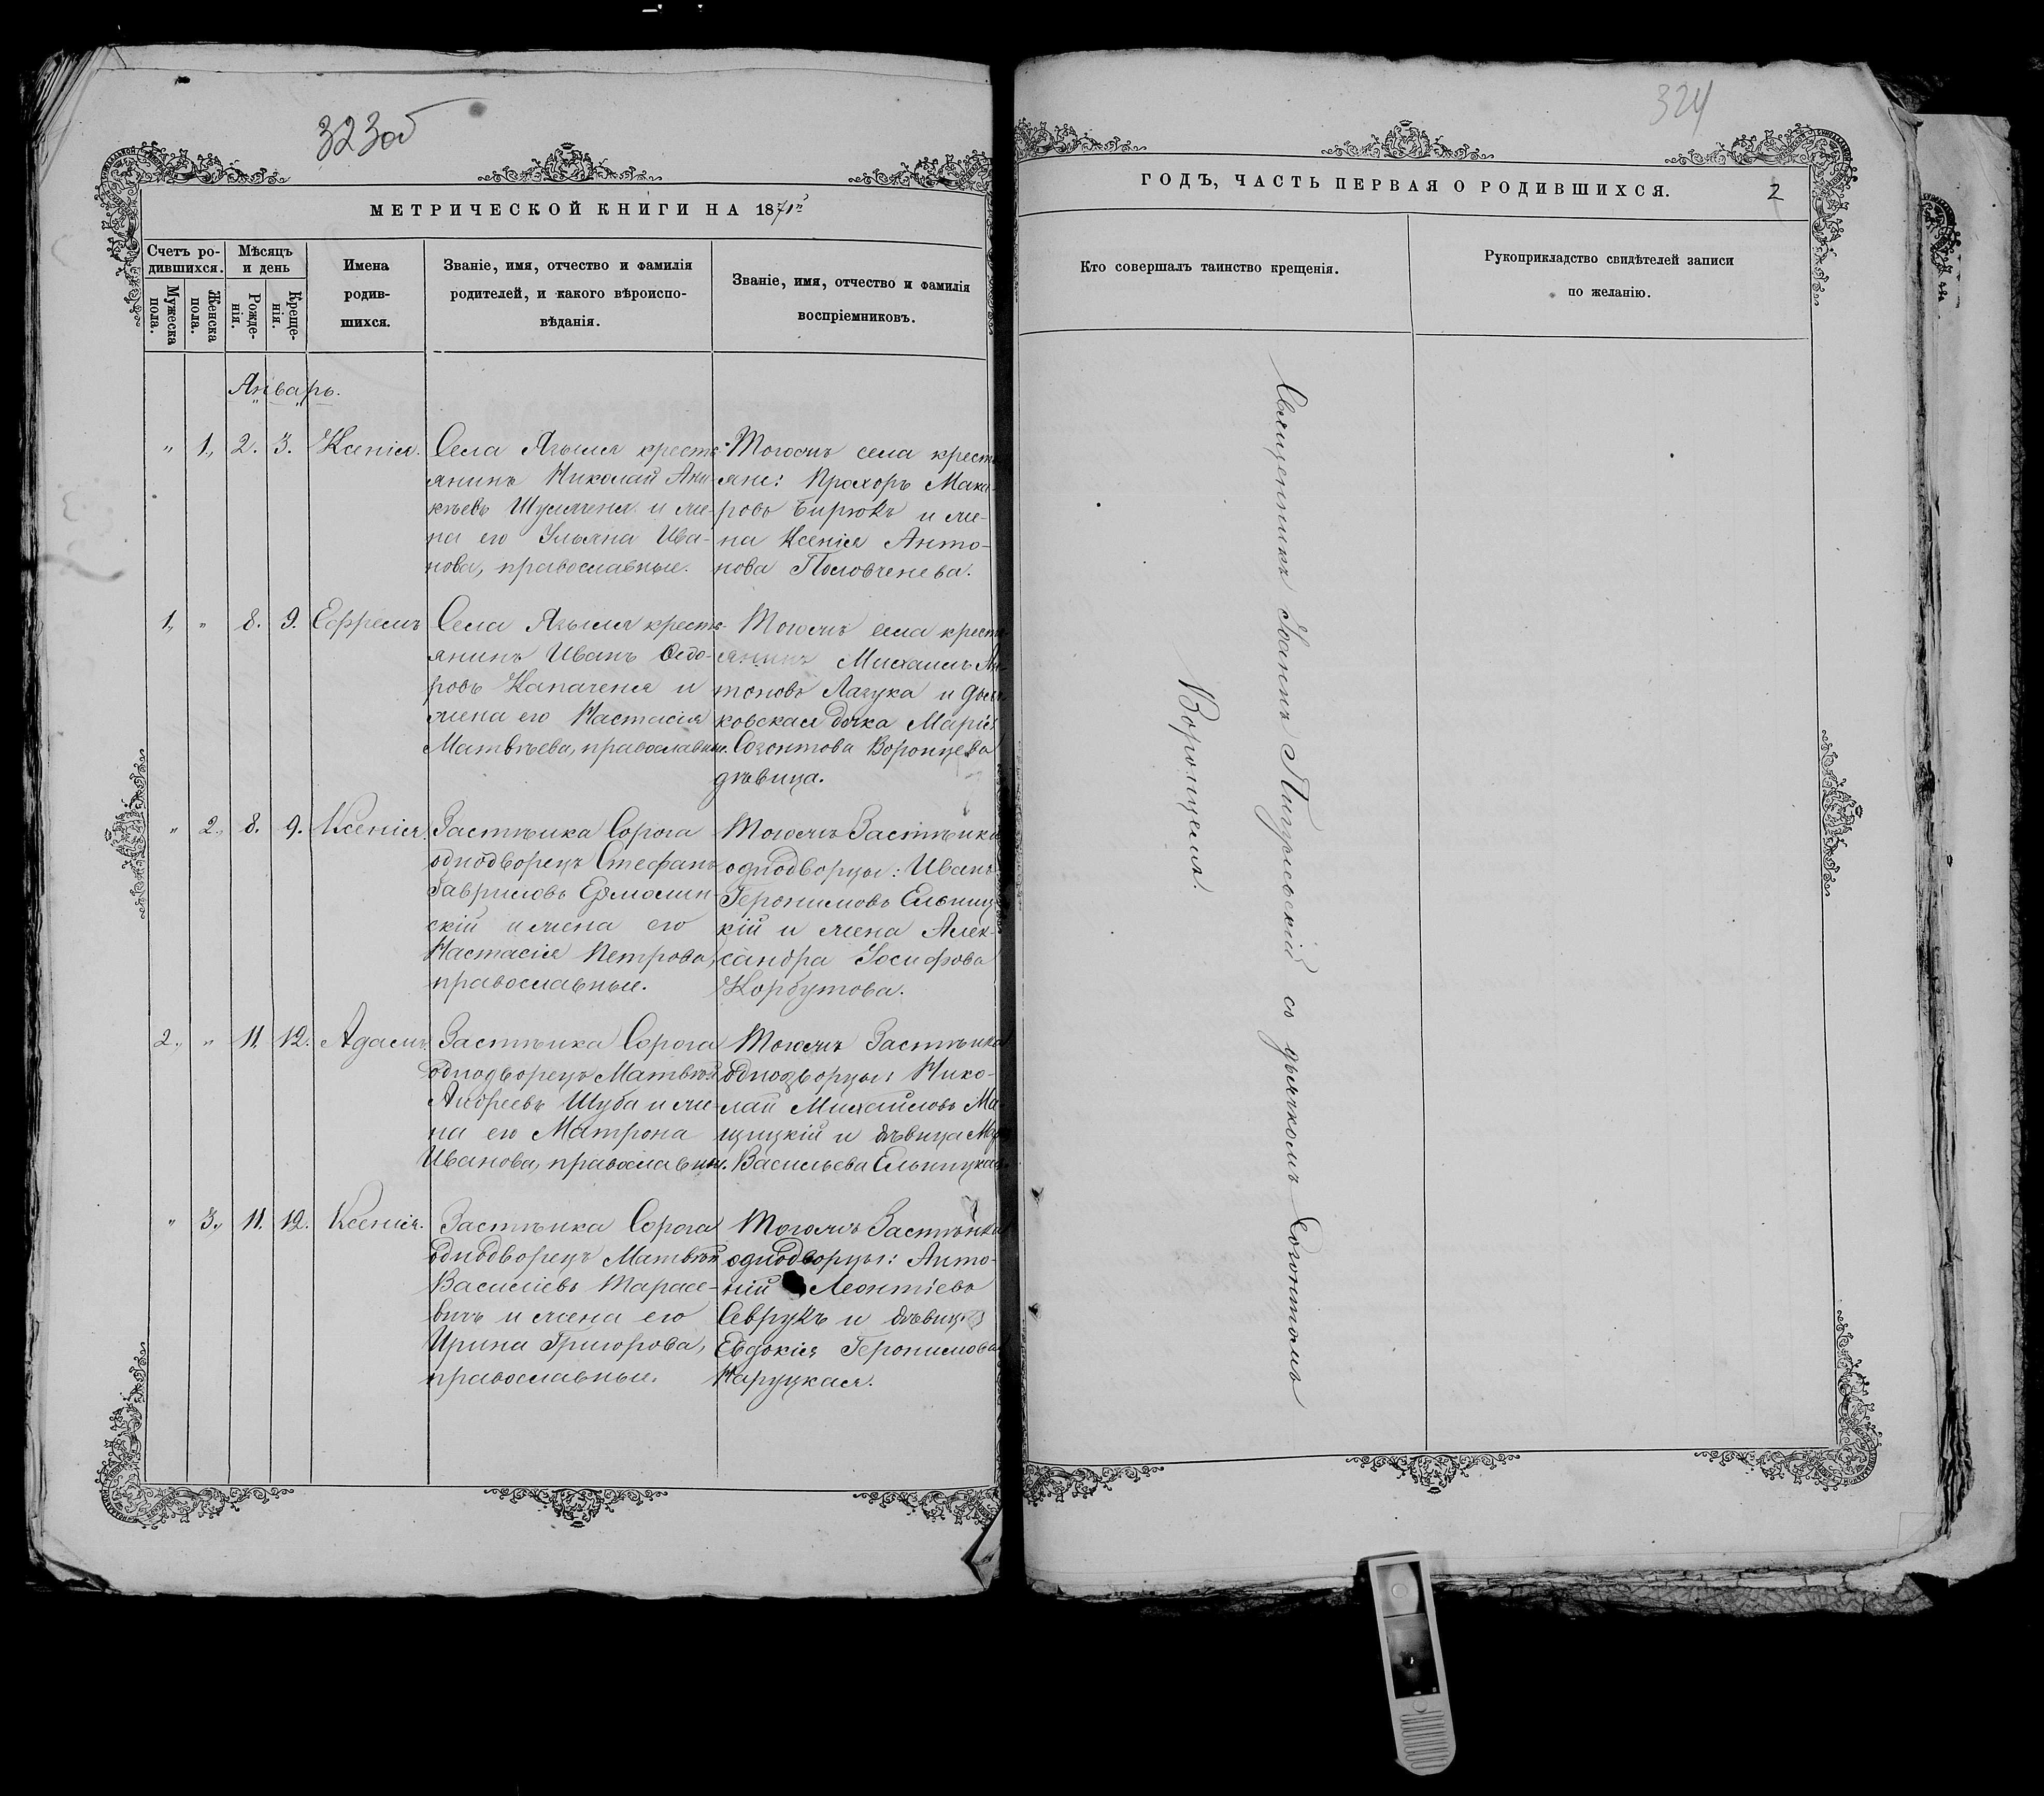 323об
МЕТРИЧЕСКОЙ КНИГИ НА 1871й
Счетъ ро-
дившихся.
Мужеска
пола.
Женска
пола.
Мѣсяцъ
и день
Рожде-
нія.
Креще-
нія.
Имена
родив-
шихся.
Званіе, имя, отчество и фамилія
родителей, и какого вѣроиспо-
вѣданія.
Званіе, имя, отчество и фамилія
воспріемниковъ.
Январь.
" 1., 2. 3. Ксенія.
Села Языля кресть-
янинъ Николай Ани-
кѣевъ Шуляченя и же-
на его Ульяна Ива-
нова, православные.
Тогожъ села кресть-
яне: Прохоръ Мака-
ровъ Бирюкъ и же-
на Ксенія Анто-
нова Половченева.
1., " 8. 9. Ефремъ
Села Языля кресть-
янинъ Иванъ Ѳедо-
ровъ Капаченя и
жена его Настасія
Матвѣева, православные.
Тогожъ села кресть-
янинъ Михаилъ Ан-
тоновъ Лазука и дьяч-
ковская дочка Марія
Созонтова Воронцева
дѣвица.
" 2., 8. 9. Ксенія.
Застѣнка Сорога
однодворецъ Стефанъ
Гавриловъ Ермолин-
скій и жена его
Настасія Петрова,
православные.
Тогожъ Застѣнка
однодворцы: Иванъ
Геронимовъ Ельниц-
кій и жена Алек-
сандра Іосифова
Корбутова.
2., " 11. 12. Адамъ.
Застѣнка Сорога
однодворецъ Матвѣй
Андреевъ Шуба и же-
на его Матрона
Иванова, православные.
Тогожъ Застѣнка
однодворцы: Нико-
лай Михайловъ Ма-
цицкій и дѣвица
Васильева Ельницкая.
" 3., 11. 12. Ксенія.
Застѣнка Сорога
однодворецъ Матвѣй
Василіевъ Тарасе-
вичъ и жена его
Ирина Григорова,
православные.
Тогожъ Застѣнка
однодворцы: Анто-
ній Леонтіевъ
Севрукъ и дѣвица
Евдокія Геронимова
Наруцкая.
324
ГОДЪ, ЧАСТЬ ПЕРВАЯ О РОДИВШИХСЯ.
2
Кто совершалъ таинство крещенія.
Рукоприкладство свидѣтелей записи
по желанію.
Священникъ Іоаннъ Пигулевскій со дьячкомъ Созонтомъ
Воронцемъ.